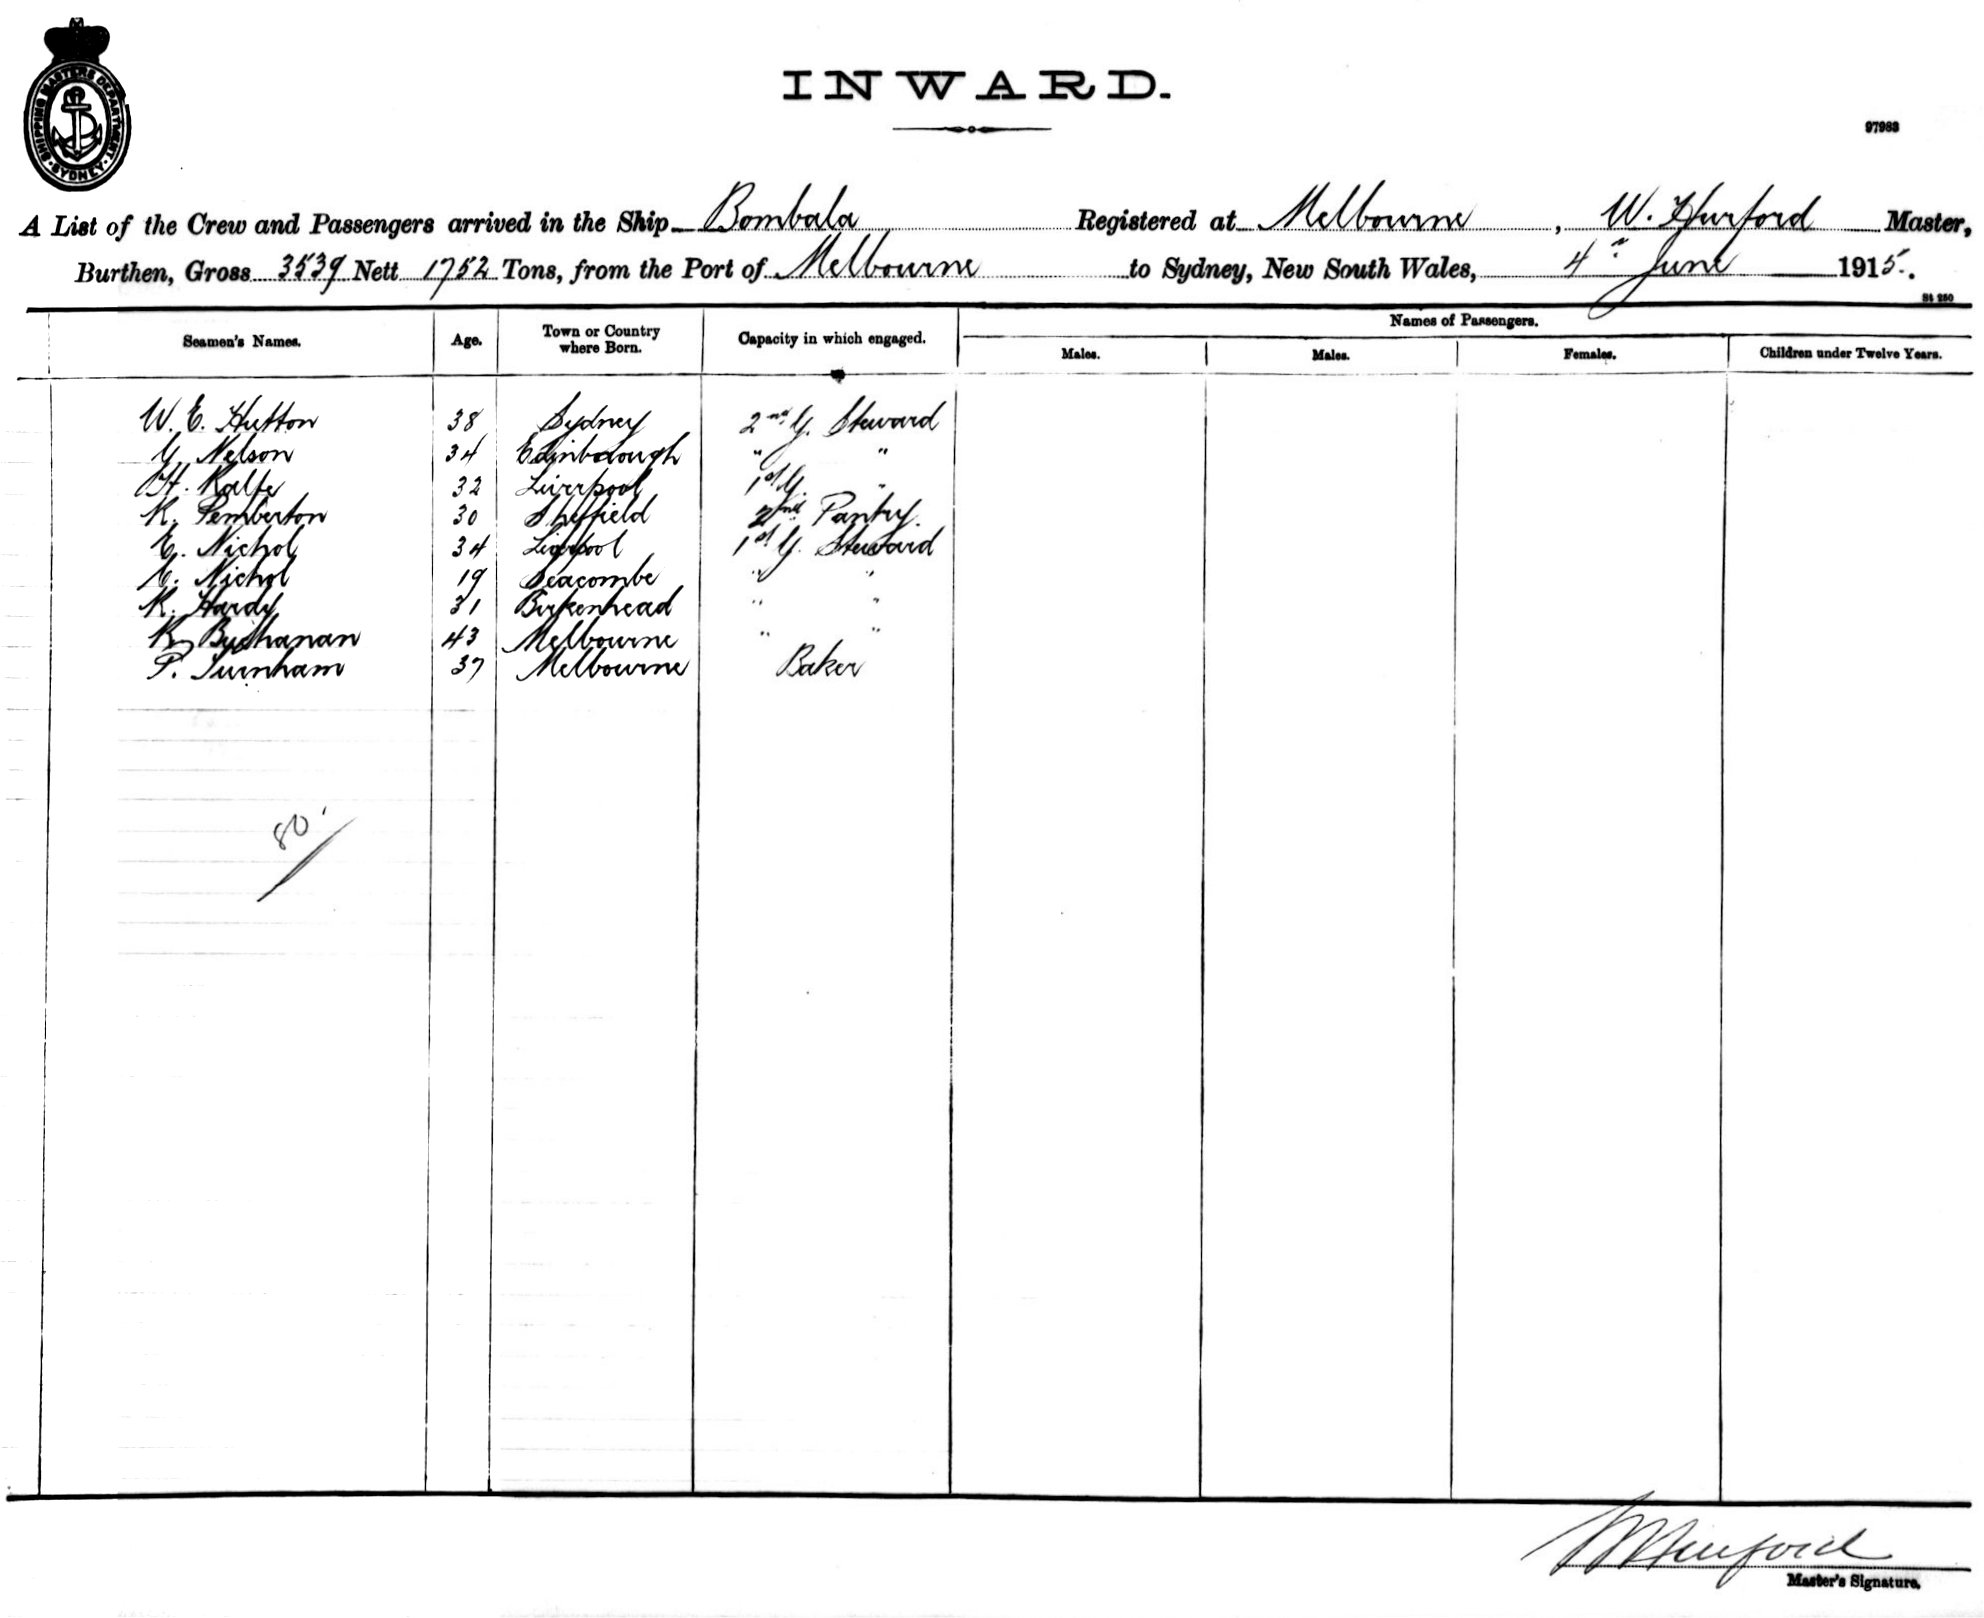 SHIPPING MASTERS DEPARTMENT · SYDNEY ·
INWARD.
97983
A List of the Crew and Passengers arrived in the Ship Bombala Registered at Melbourne, W. Hurford Master,
Burthen, Gross 3539 Nett 1752 Tons, from the Port of Melbourne to Sydney, New South Wales, 4th June 1915.
St 250
Seamen's Names. Age. Town or Country where Born. Capacity in which engaged. Names of Passengers.
Males. Males. Females. Children under Twelve Years.
W. E. Hutton 38 Sydney 2nd G. Steward
G. Nelson 34 Edinborough " "
H. Kalfe 32 Liverpool 1st G. "
R. Pemberton 30 Sheffield 2nd Pantry.
E. Nichol 34 Liverpool 1st G. Steward
Nichol 19 Seacombe " "
R. Hardy 31 Birkenhead " "
R. Buchanan 43 Melbourne " "
P. Turnham 37 Melbourne Baker
80
W Hurford
Master's Signature.